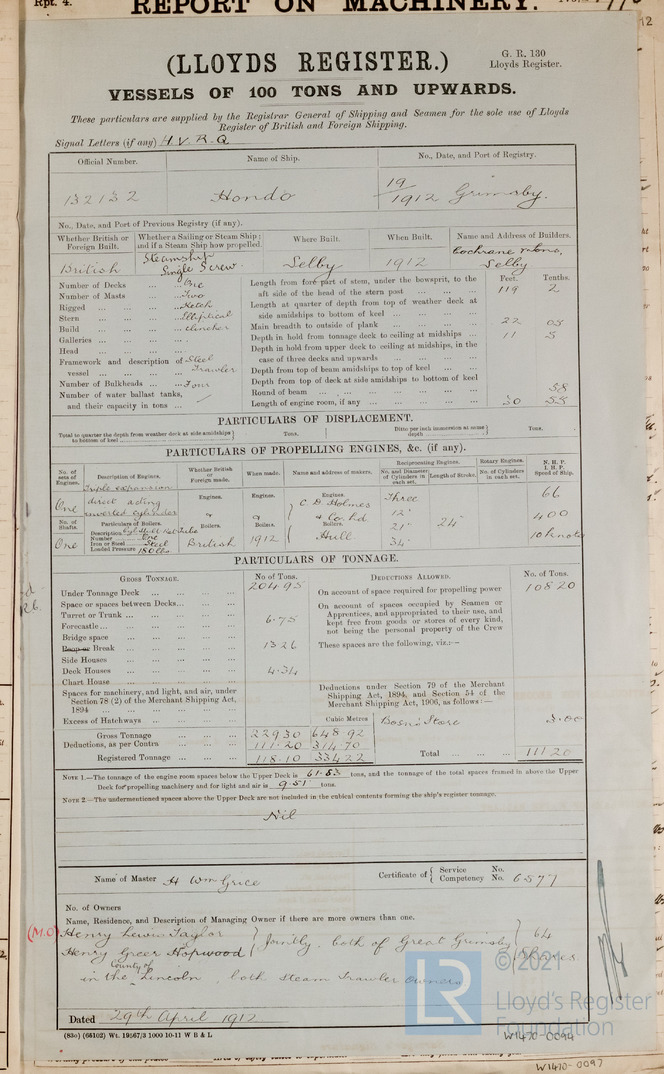 Rpt. 4. REPORT ON MACHINERY.
12
(LLOYDS REGISTER.)
G. R. 130
Lloyds Register.
VESSELS OF 100 TONS AND UPWARDS.
These particulars are supplied by the Registrar General of Shipping and Seamen for the sole use of Lloyds
Register of British and Foreign Shipping.
Signal Letters (if any) H.V.R.Q
Official Number. Name of Ship. No., Date, and Port of Registry.
132132 Hondo 19/1912 Grimsby.
No., Date, and Port of Previous Registry (if any).
Whether British or Foreign Built. Whether a Sailing or Steam Ship; and if a Steam Ship how propelled. Where Built. When Built. Name and Address of Builders.
British Steamship Single Screw Selby 1912 Cochrane & Sons, Selby
Feet. Tenths.
Number of Decks ... One
Number of Masts ... Two
Rigged ... Ketch
Stern ... Elliptical
Build ... clincher
Galleries ...
Head ...
Framework and description of vessel ... Steel Trawler
Number of Bulkheads ... Four
Number of water ballast tanks, and their capacity in tons ... /
Length from fore part of stem, under the bowsprit, to the
aft side of the head of the stern post ... 119 2
Length at quarter of depth from top of weather deck at
side amidships to bottom of keel ...
Main breadth to outside of plank ... 22 05
Depth in hold from tonnage deck to ceiling at midships ... 11 5
Depth in hold from upper deck to ceiling at midships, in the
case of three decks and upwards ...
Depth from top of beam amidships to top of keel ...
Depth from top of deck at side amidships to bottom of keel
Round of beam ... 58
Length of engine room, if any ... 30 55
PARTICULARS OF DISPLACEMENT.
Total to quarter the depth from weather deck at side amidships to bottom of keel } Tons. Ditto per inch immersion at same depth } Tons.
PARTICULARS OF PROPELLING ENGINES, &c. (if any).
No. of sets of Engines. Description of Engines. Whether British or Foreign made. When made. Name and address of makers. Reciprocating Engines. No. and Diameter of Cylinders in each set. Length of Stroke. Rotary Engines. No. of Cylinders in each set. N. H. P. I. H. P. Speed of Ship.
One Triple expansion direct acting inverted cylinder
Engines. Engines. Engines.
C. D. Holmes & Co. Ltd Hull
Three 12" 21" 34" 24" 66 400 10 knots
No. of Shafts. Particulars of Boilers. Boilers. Boilers. Boilers.
One
Description
Number One
Iron or Steel Steel
Loaded Pressure 180 lbs
British 1912
PARTICULARS OF TONNAGE.
GROSS TONNAGE. No of Tons. DEDUCTIONS ALLOWED. No. of Tons.
Under Tonnage Deck ... 204.95
Space or spaces between Decks...
Turret or Trunk ...
Forecastle ... 6.75
Bridge space
Poop or Break ... 13.26
Side Houses
Deck Houses ... 4.34
Chart House
Spaces for machinery, and light, and air, under
Section 78 (2) of the Merchant Shipping Act,
1894 ...
Excess of Hatchways ...
On account of space required for propelling power 108.20
On account of spaces occupied by Seamen or
Apprentices, and appropriated to their use, and
kept free from goods or stores of every kind,
not being the personal property of the Crew
These spaces are the following, viz.:—
Deductions under Section 79 of the Merchant
Shipping Act, 1894, and Section 54 of the
Merchant Shipping Act, 1906, as follows:—
Cubic Metres
Bosn's Store 3.00
Gross Tonnage 229.30 648.92
Deductions, as per Contra 111.20 314.70
Registered Tonnage 118.10 334.22
Total ... 111.20
NOTE 1.—The tonnage of the engine room spaces below the Upper Deck is 61.53 tons, and the tonnage of the total spaces framed in above the Upper
Deck for propelling machinery and for light and air is 9.51 tons.
NOTE 2.—The undermentioned spaces above the Upper Deck are not included in the cubical contents forming the ship's register tonnage.
Nil
Name of Master H Wm Grice Certificate of { Service No. Competency No. 6577
No. of Owners
Name, Residence, and Description of Managing Owner if there are more owners than one.
(M.O) Henry Lewis Taylor
Henry Greer Hopwood } Jointly, both of Great Grimsby } 64 Shares.
in the County of Lincoln, both Steam Trawler Owners
Dated 29th April 1912
(83o) (66102) Wt. 19567/3 1000 10-11 W B & L
LR © 2021
Lloyd's Register
Foundation
W1470-0094
W1470-0097